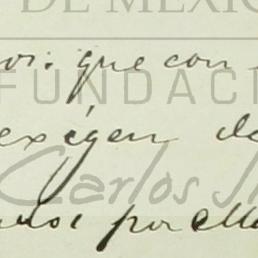 DE MÉXIC
que con
FUNDACI
exigen de
Carlos S
por ell